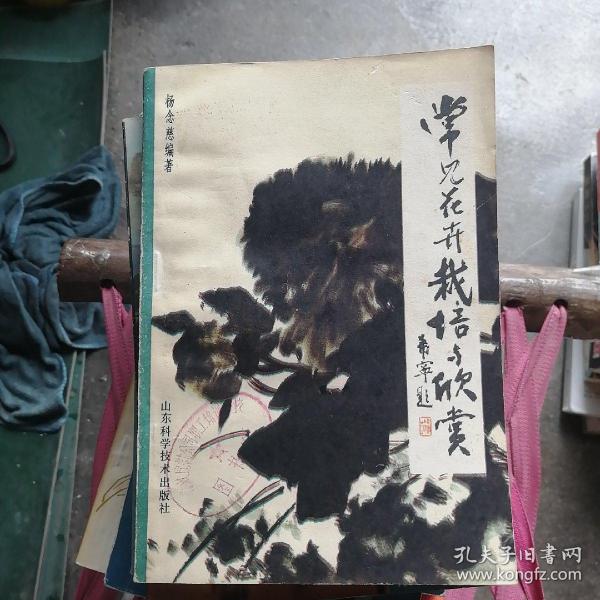 杨念慈编著
常见花卉栽培与欣赏
山东科学技术出版社
孔夫子旧书网
www.kongfz.com